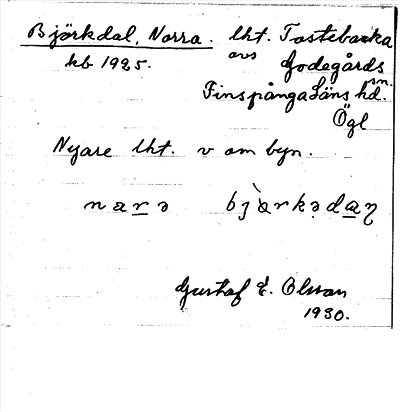 Björkdal, Norra. lht. Tostebacka
kb 1925. avs Godegårds
sn.
Finspånga Läns hd.
Ögl
Nyare lht. v om byn.
nara bjàrkəda
Gustaf E. Olsson
1930.